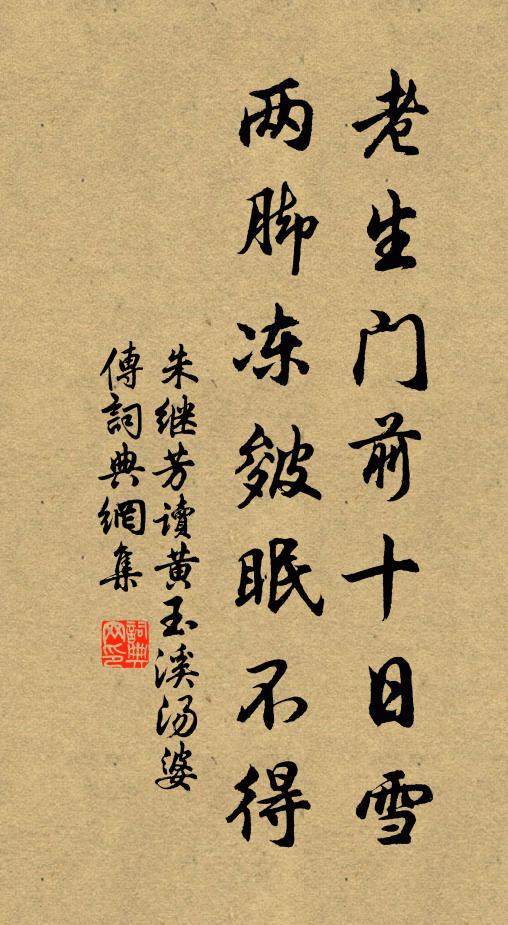 老生门前十日雪
两脚冻皴眠不得
朱继芳读黄玉溪汤婆
傅詞典網集
詞典网印